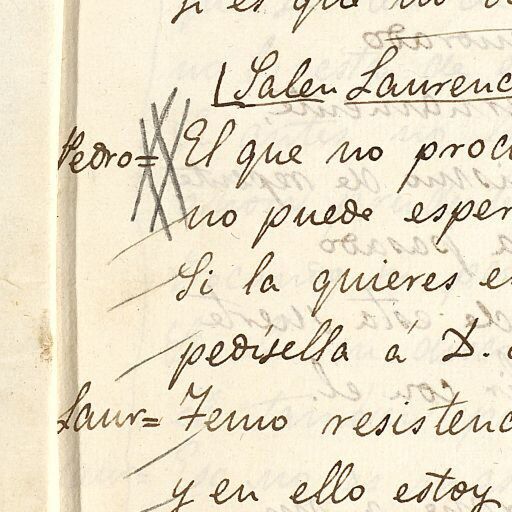 si es que no
[Salen Laurenc
Pedro= El que no proc
no puede esper
Si la quieres e
pedísella á D.
Laur= Temo resistenc
y en ello estoy